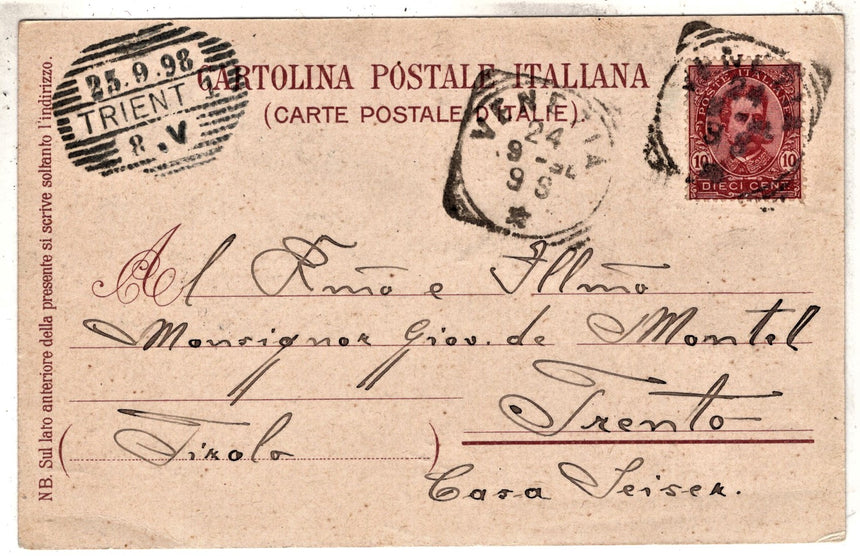 CARTOLINA POSTALE ITALIANA
(CARTE POSTALE D'ITALIE)
25.9.98
TRIENT
8 . V
VENEZIA
24
9 - 98
POSTE ITALIANE
10 10
DIECI CENT.
Al Rmo e Illmo
Monsignor Giov. de Montel
Trento
(Tirolo)
Casa Seiser.
NB. Sul lato anteriore della presente si scrive soltanto l'indirizzo.